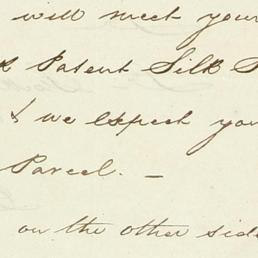 will meet your
Patent Silk
& we expect you
Parcel. —
on the other side